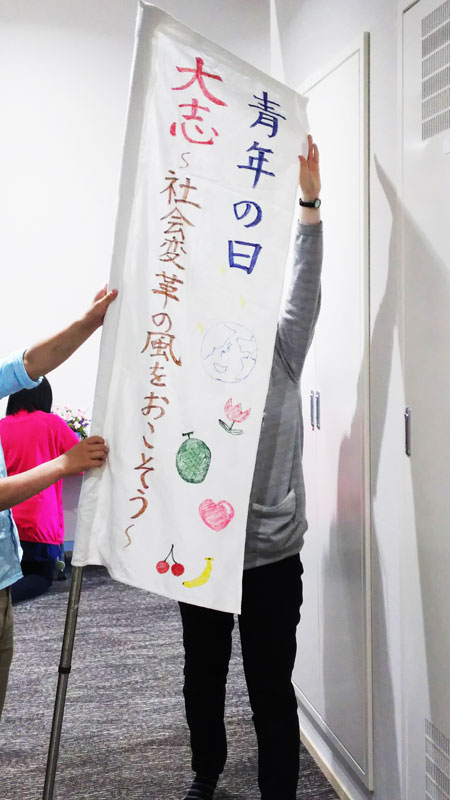 青年の日
大志
～社会変革の風をおこそう～